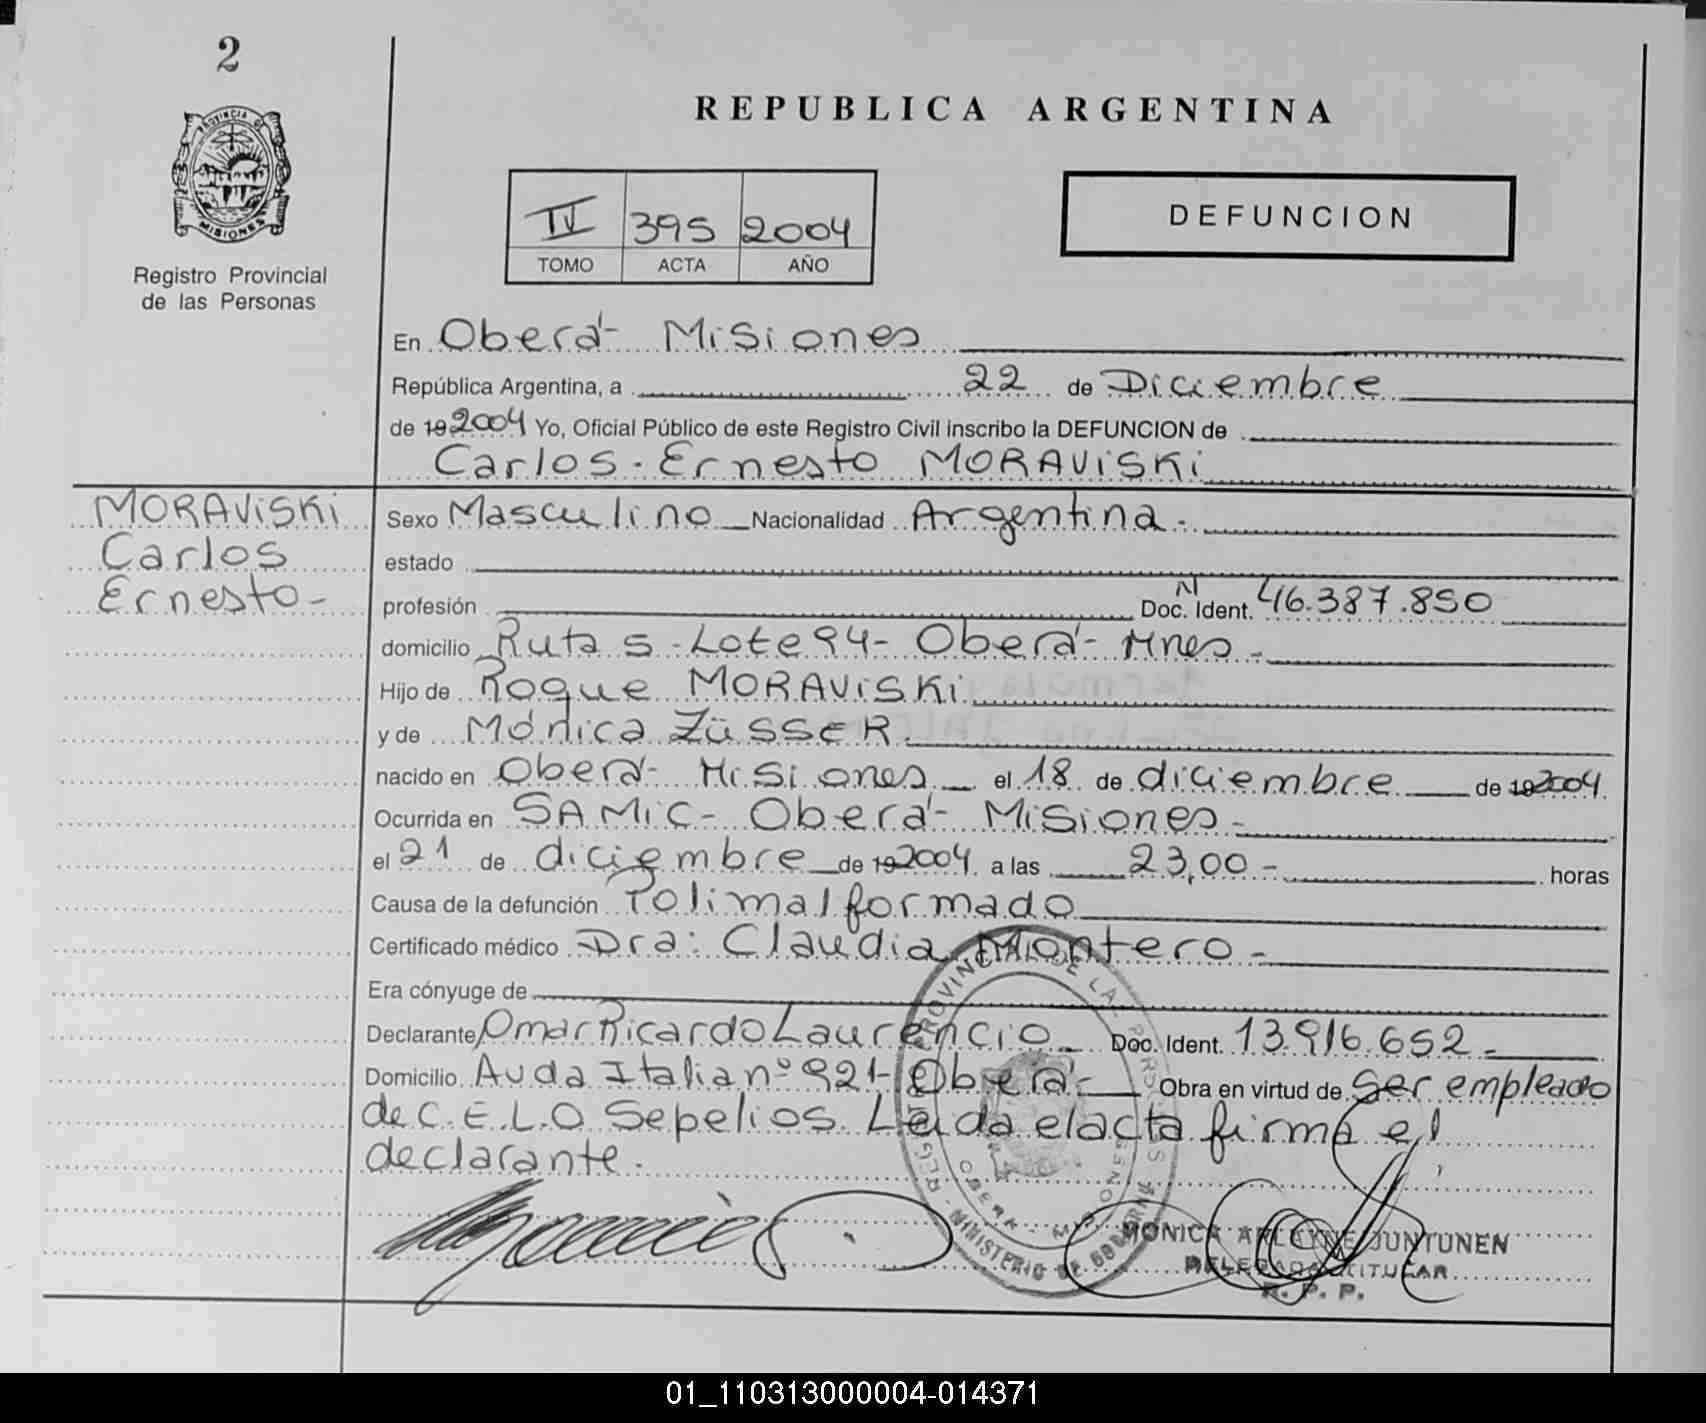 2
PROVINCIA DE
MISIONES
Registro Provincial
de las Personas
REPUBLICA ARGENTINA
IV 395 2004
TOMO ACTA AÑO
DEFUNCION
En Oberá - Misiones
República Argentina, a 22 de Diciembre
de 19 2004 Yo, Oficial Público de este Registro Civil inscribo la DEFUNCION de
Carlos - Ernesto MORAViSKi
MORAViSKi
Carlos
Ernesto -
Sexo Masculino Nacionalidad Argentina -
estado
profesión Doc. Ident. N 46.387.850
domicilio Ruta 5 - Lote 94 - Oberá - Mnes -
Hijo de Roque MORAViSKi
y de Mónica ZÜSSER
nacido en Oberá - Misiones el 18 de diciembre de 19 2004
Ocurrida en SAMiC - Oberá - Misiones -
el 21 de diciembre de 19 2004 a las 23,00 - horas
Causa de la defunción Polimalformado
Certificado médico Dra: Claudia Montero -
Era cónyuge de
Declarante Omar Ricardo Laurencio Doc. Ident. 13.916.652 -
Domicilio Avda Italia nº 921 - Oberá - Obra en virtud de Ser empleado
de C.E.L.O Sepelios. Leida el acta firma el
declarante.
MONICA ARLAYNE JUNTUNEN
DELEGADA TITULAR
R. P. P.
01_110313000004-014371